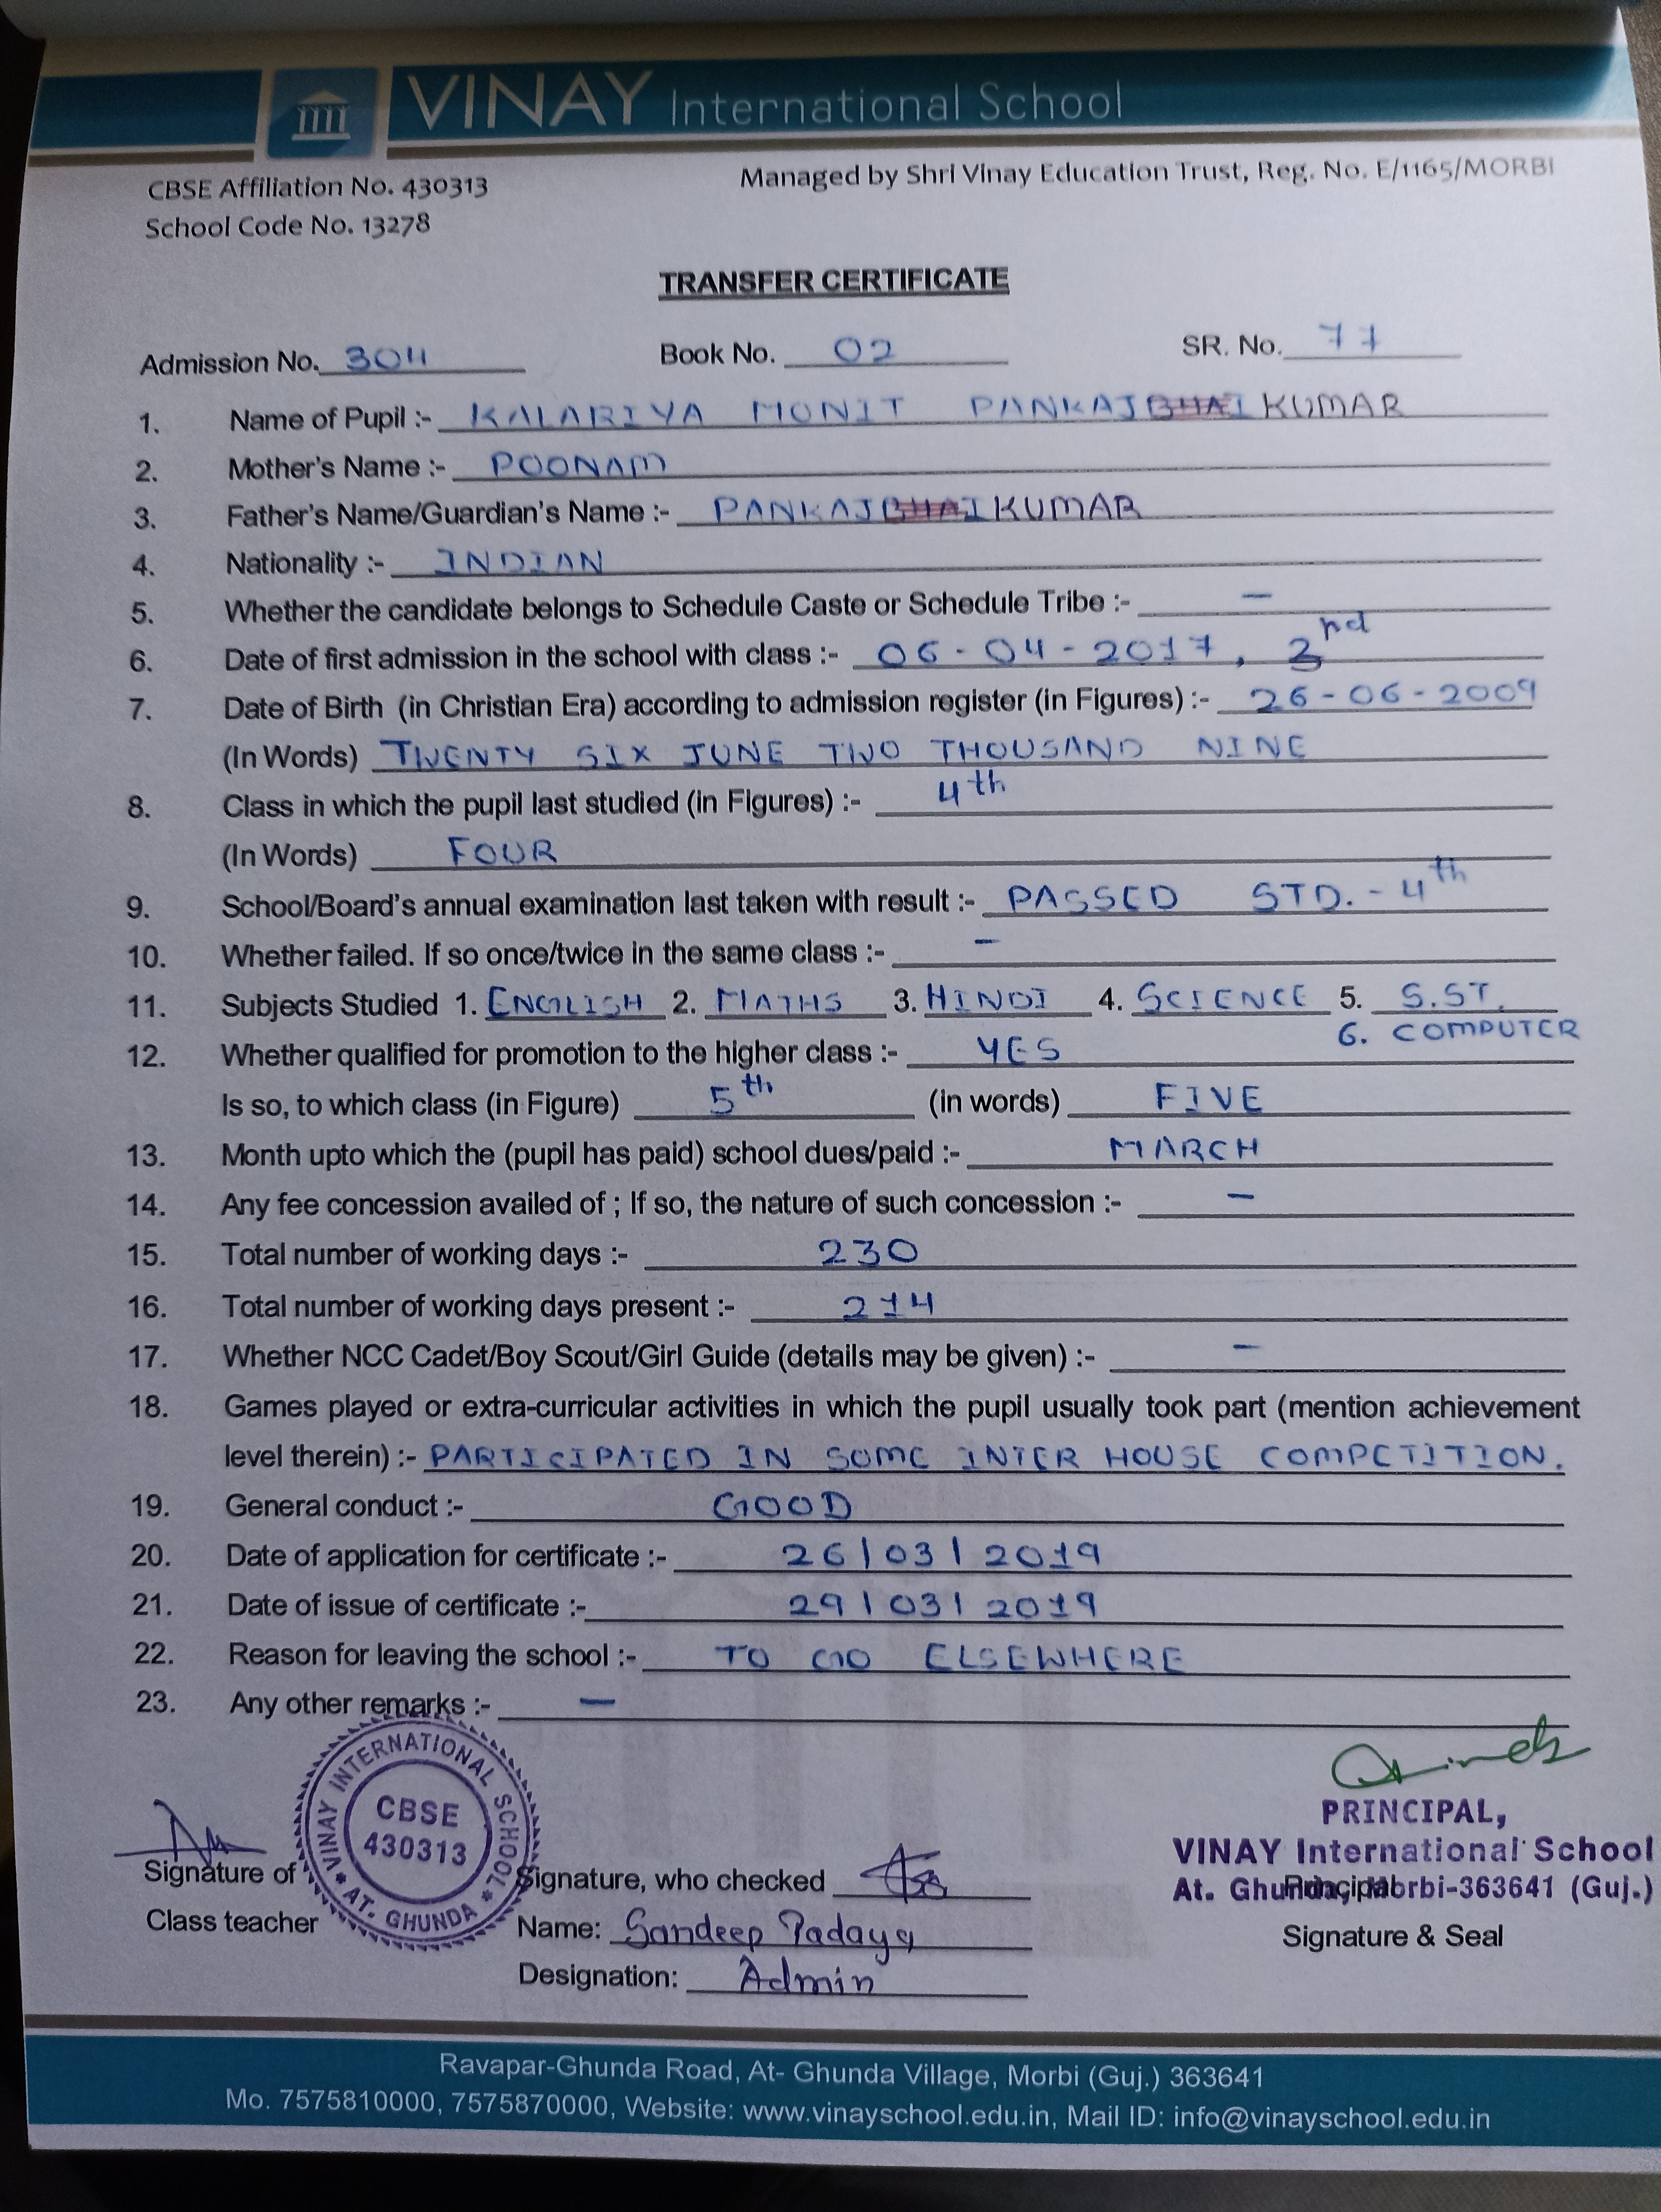 VINAY International School
CBSE Affiliation No. 430313
Managed by Shri Vinay Education Trust, Reg. No. E/1165/MORBI
School Code No. 13278
TRANSFER CERTIFICATE
Admission No. 304 Book No. 02 SR. No. 77
1. Name of Pupil :- KALARIYA MONIT PANKAJBHAI KUMAR
2. Mother's Name :- POONAM
3. Father's Name/Guardian's Name :- PANKAJBHAI KUMAR
4. Nationality :- INDIAN
5. Whether the candidate belongs to Schedule Caste or Schedule Tribe :- –
6. Date of first admission in the school with class :- 06-04-2017, 2nd
7. Date of Birth (in Christian Era) according to admission register (in Figures) :- 26-06-2009
(In Words) TWENTY SIX JUNE TWO THOUSAND NINE
8. Class in which the pupil last studied (in Figures) :- 4th
(In Words) FOUR
9. School/Board's annual examination last taken with result :- PASSED STD.-4th
10. Whether failed. If so once/twice in the same class :- –
11. Subjects Studied 1. ENGLISH 2. MATHS 3. HINDI 4. SCIENCE 5. S.ST.
6. COMPUTER
12. Whether qualified for promotion to the higher class :- YES
Is so, to which class (in Figure) 5th (in words) FIVE
13. Month upto which the (pupil has paid) school dues/paid :- MARCH
14. Any fee concession availed of ; If so, the nature of such concession :- –
15. Total number of working days :- 230
16. Total number of working days present :- 214
17. Whether NCC Cadet/Boy Scout/Girl Guide (details may be given) :- –
18. Games played or extra-curricular activities in which the pupil usually took part (mention achievement
level therein) :- PARTICIPATED IN SOME INTER HOUSE COMPETITION.
19. General conduct :- GOOD
20. Date of application for certificate :- 26/03/2019
21. Date of issue of certificate :- 29/03/2019
22. Reason for leaving the school :- TO GO ELSEWHERE
23. Any other remarks :- –
VINAY INTERNATIONAL SCHOOL
CBSE
430313
AT. GHUNDA
PRINCIPAL,
VINAY International School
At. Ghunda, Morbi-363641 (Guj.)
Principal
Signature & Seal
Signature of
Class teacher
Signature, who checked
Name: Sandeep Padaya
Designation: Admin
Ravapar-Ghunda Road, At- Ghunda Village, Morbi (Guj.) 363641
Mo. 7575810000, 7575870000, Website: www.vinayschool.edu.in, Mail ID: info@vinayschool.edu.in